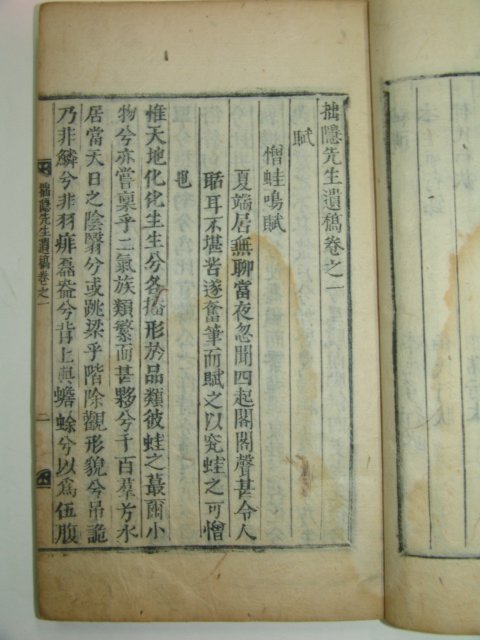 拙隱先生遺稿卷之一
賦
憎蛙鳴賦
夏端居無聊當夜忽聞四起閣閣聲甚令人
聒耳不堪苦遂奮筆而賦之以究蛙之可憎
也
惟天地化化生生兮各播形於品類彼蛙之蕞爾小
物兮亦嘗稟乎二氣族類繁而甚夥兮千百羣方水
居當天日之陰翳兮或跳梁乎階除觀形貌兮吊詭
乃非鱗兮非羽痱磊嵓兮背上與蟾蜍兮以爲伍腹
拙隱先生遺稿卷之一
二